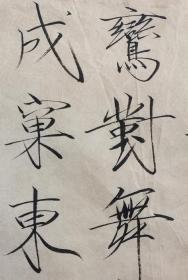 鸞對舞
成窠東